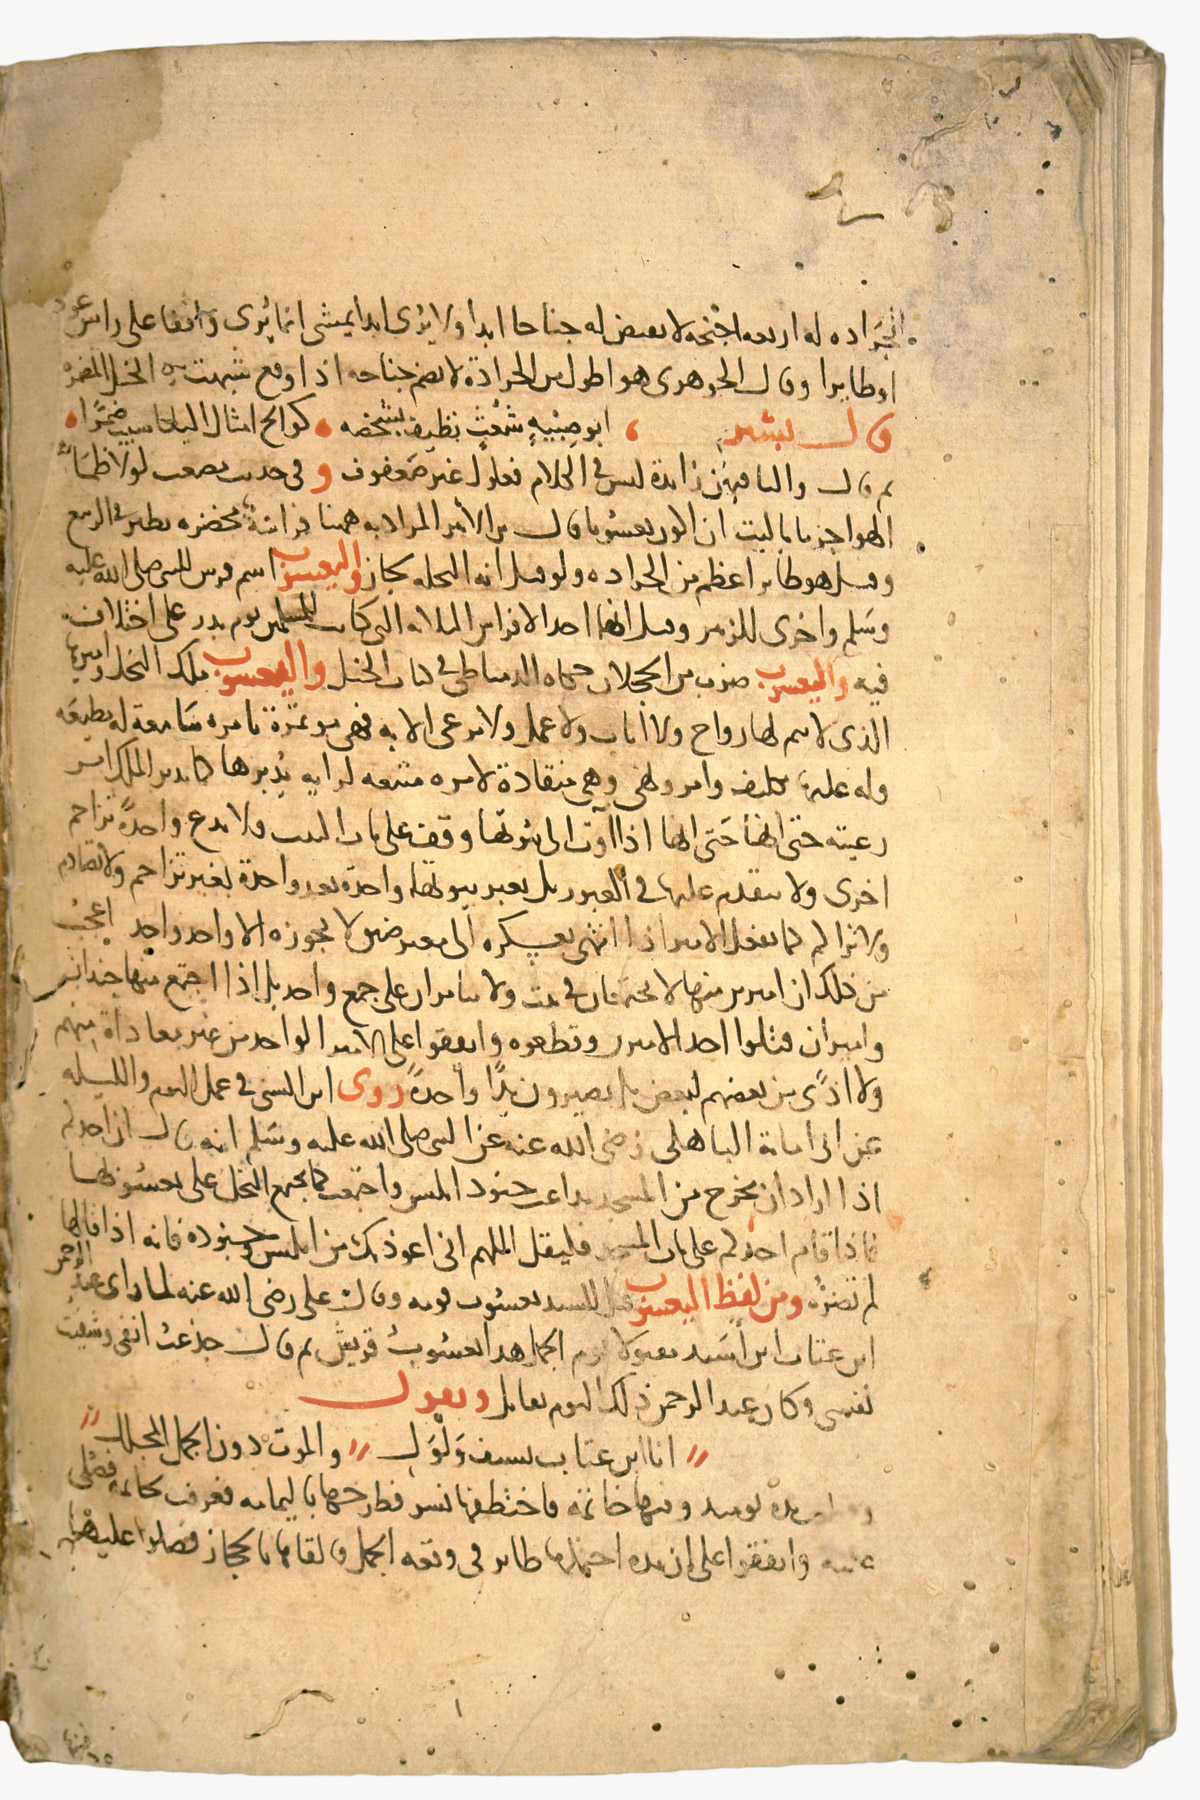 الجراده له اربعة اجنحه لا يقبض له جناحا ابدا ولا يرى ابدا يمشى انما يرى واقفا على راس عود
او طايرا وقال الجوهرى هو اطول من الجرادة لا يضم جناحه اذا وقع شبهت به الخيل المضمره
قال بشر ابو صبيه شعث تطيف بشخصه كوالح امثال اليعاسيب ضمرا
ثم قال واليا فيه زايدة ليس فى الكلام فعلول غير صعفوق وفى حديث معضد لولا ظما
الهواجر ما باليت ان اكون يعسوبا قال ابن الاثير المراد به هنا فراشة مخضره تطير فى الربيع
وقيل هو طاير اعظم من الجراده ولو قيل انه النحله لجاز واليعسوب اسم فرس للنبى صلى الله عليه
وسلم واخرى للزبير وقيل انها احد الافراس الثلاثه التى كانت للمسلمين يوم بدر على اختلاف
فيه واليعسوب ضرب من الحجلان حكاه الدمياطى فى كتاب الخيل واليعسوب ملك النحل واميرها
الذى لا يتم لها رواح ولا اياب ولا عمل ولا مرعى الا به فهى موتمرة بامره سامعة له مطيعه
وله عليها تكليف وامر ونهى وهى منقادة لامره متبعه لرايه يدبرها كما يدبر الملك امر
رعيته حتى انها حتى انها اذا اوت الى بيوتها وقف على باب البيت ولا يدع واحدة تزاحم
اخرى ولا تتقدم عليها فى العبور بل تعبر بيوتها واحدة بعد واحدة بغير تزاحم ولا تصادم
ولا تراكم كما يفعل الامير اذا انتهى بعسكره الى معبر ضيق لا يجوزه الا واحد واحد اعجب
من ذلك ان اميرين منها لا يجتمعان فى بيت ولا يتامران على جمع واحد بل اذا اجتمع منها جندان
واميران قتلوا احد الاميرين وقطعوه واتفقوا على الامير الواحد من غير معاداة بينهم
ولا اذى من بعضهم لبعض بل يصيرون يدا واحدة روى ابن السنى فى عمل اليوم والليله
عن ابى امامة الباهلى رضى الله عنه عن النبى صلى الله عليه وسلم انه قال ان احدكم
اذا اراد ان يخرج من المسجد تداعت جنود ابليس واجتمعت كما يجتمع النحل على يعسوبها
فاذا قام احدكم على باب المسجد فليقل اللهم انى اعوذ بك من ابليس وجنوده فانه اذا قالها
لم تضره ومن لفظ اليعسوب قيل للسيد يعسوب قومه وقال على رضى الله عنه لما راى عبد الرحمن
ابن عتاب ابن اسيد مقتولا يوم الجمل هذا يعسوب قريش ثم قال جدعت انفى وشفيت
نفسى وكان عبد الرحمن ذلك اليوم يقاتل ويقول
انا ابن عتاب بسيف ولول والموت دون الجمل المجلل
يده يوميد وفيها خاتمه فاختطفها نسر فطرحها باليمامه فعرف بخاتمه فصلى
عليه واتفقوا على ان يده احتملها طاير فى وقعه الجمل فالقاها بالحجاز فصلوا عليها